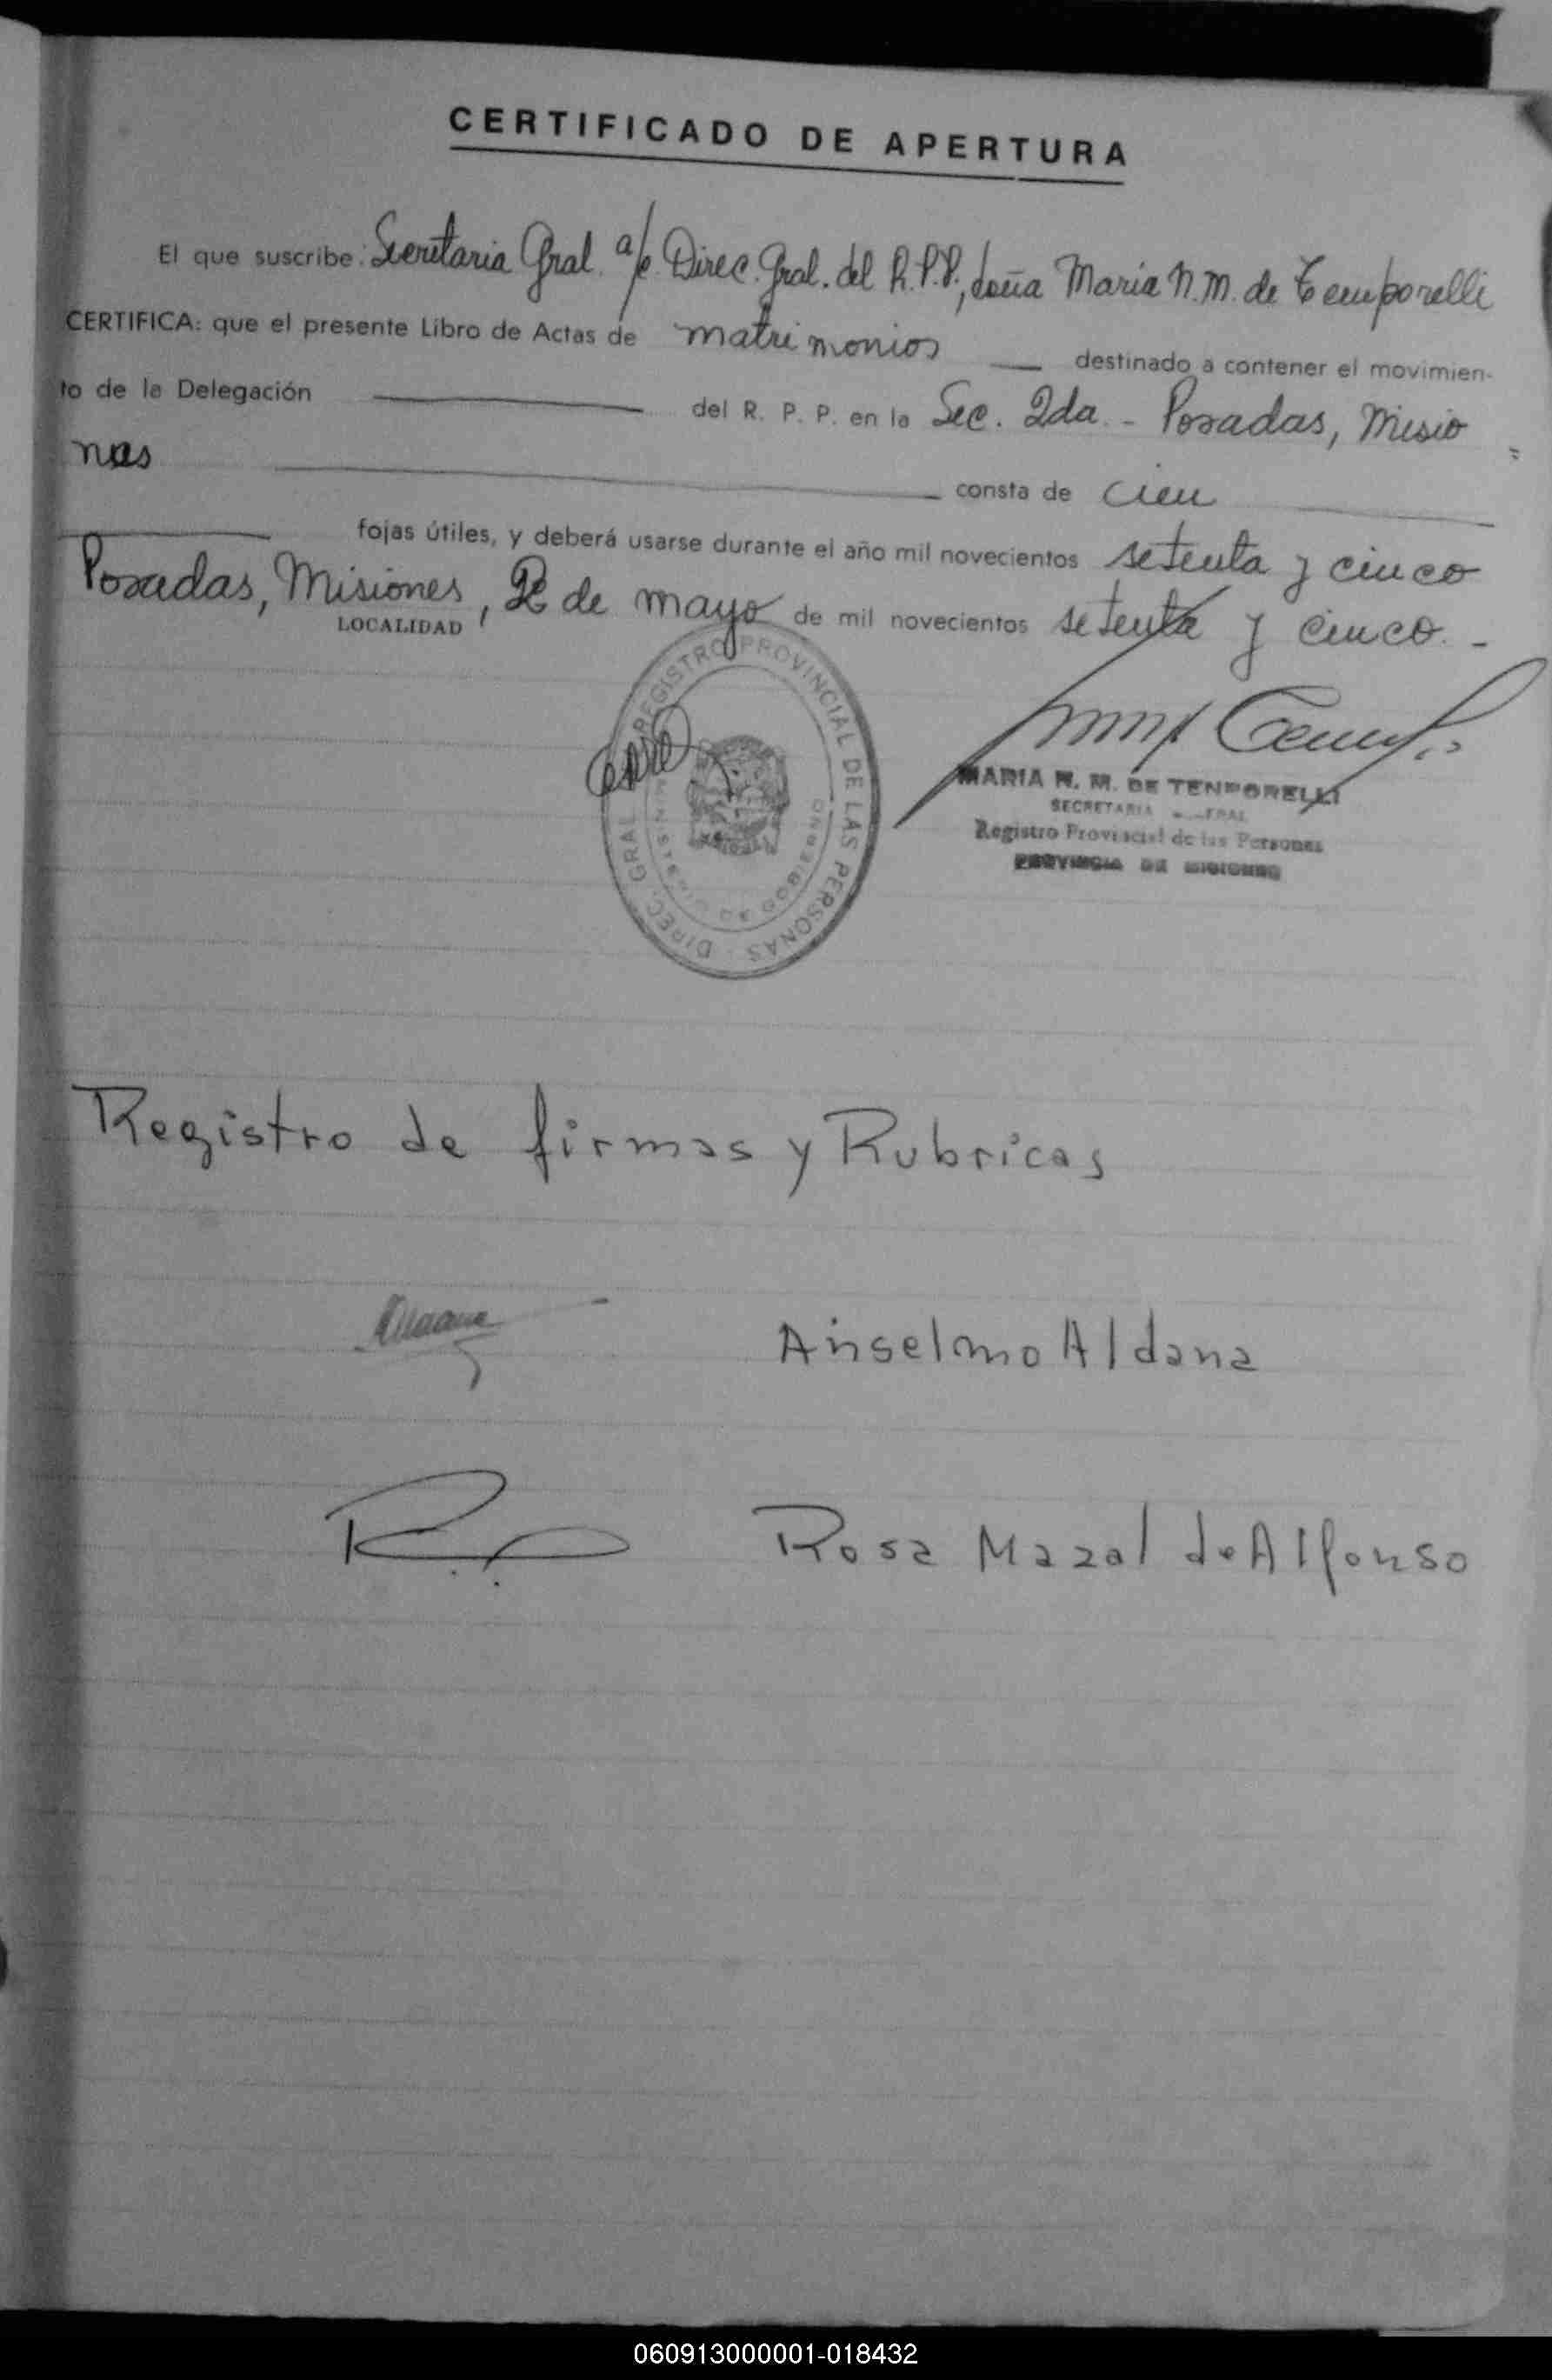 CERTIFICADO DE APERTURA
El que suscribe: Secretaria Gral. a/c Direc. Gral. del R.P.P., doña Maria N. M. de Temporelli
CERTIFICA: que el presente Libro de Actas de matrimonios destinado a contener el movimien-
to de la Delegación del R. P. P. en la Sec. 2da. - Posadas, Misio
nes consta de cien
fojas útiles, y deberá usarse durante el año mil novecientos setenta y cinco
Posadas, Misiones, de mayo de mil novecientos setenta y cinco. -
LOCALIDAD
DIREC. GRAL. REGISTRO PROVINCIAL DE LAS PERSONAS
MINISTERIO DE GOBIERNO
MARIA N. M. DE TENPORELLI
SECRETARIA
Registro Provincial de las Personas
PROVINCIA DE MISIONES
Registro de firmas y Rubricas
Anselmo Aldana
Rosa Mazal de Alfonso
060913000001-018432